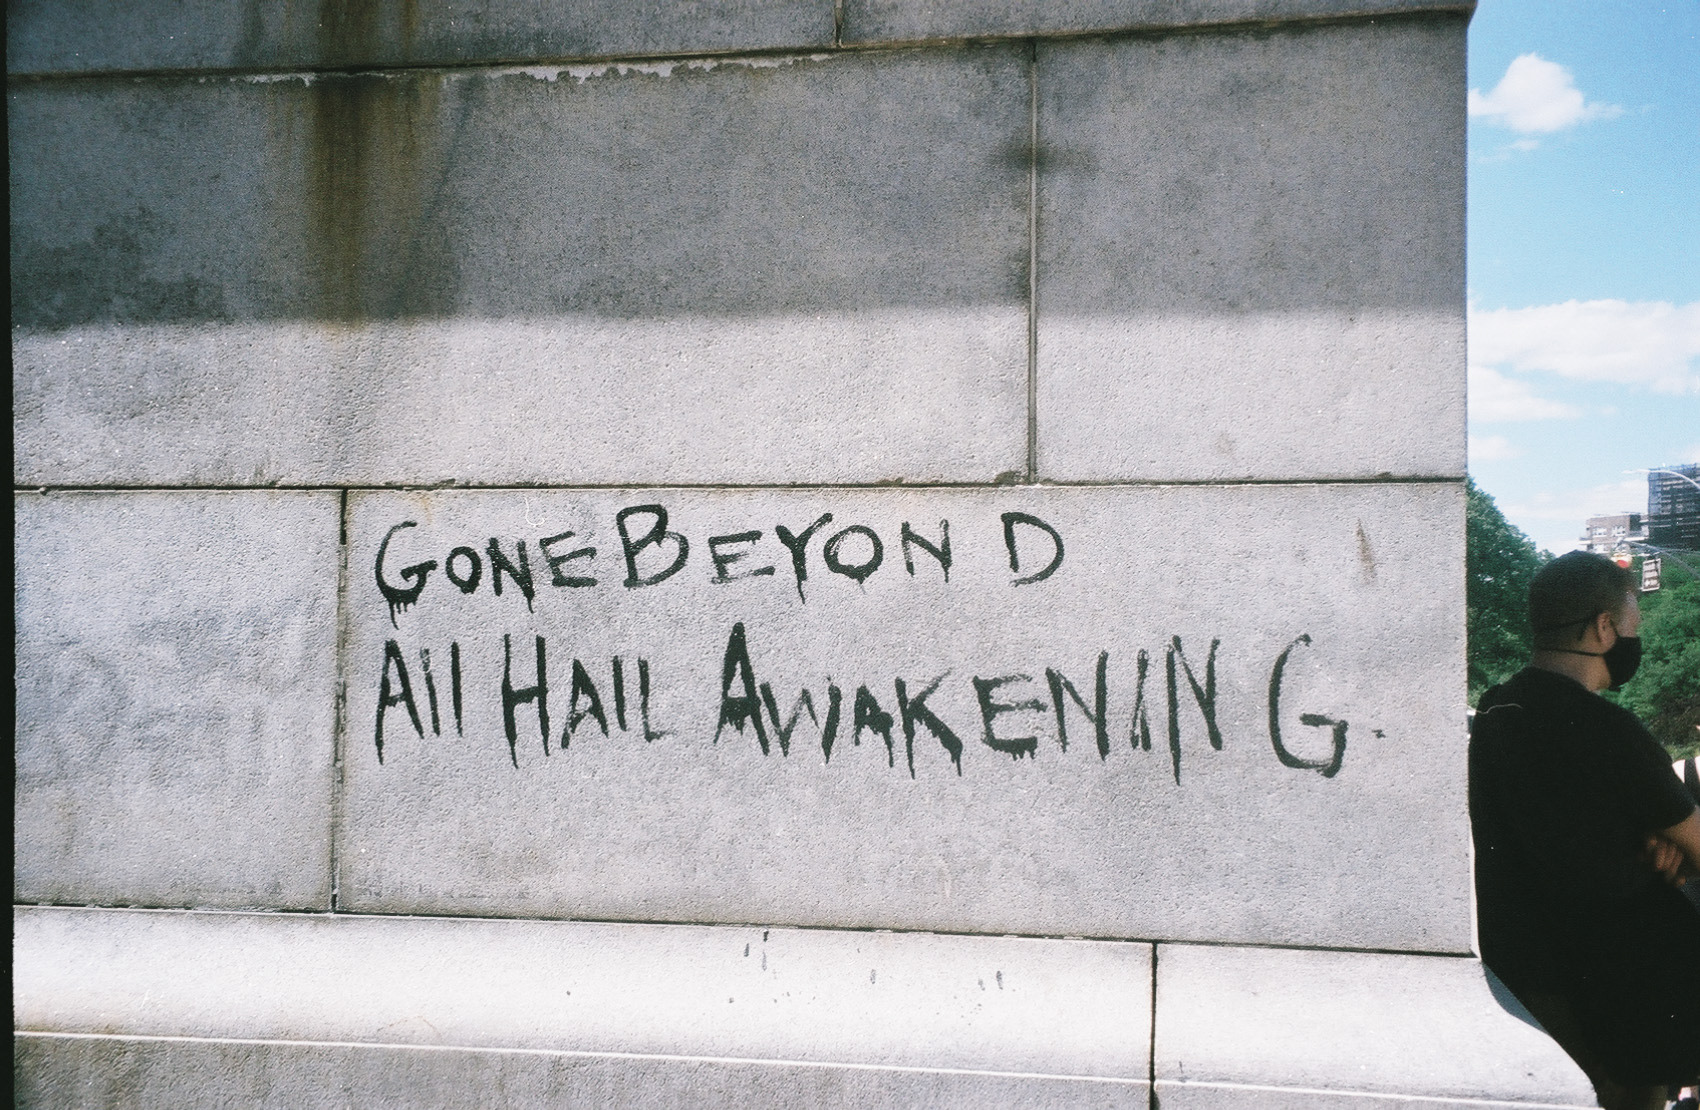 GONE BEYOND
All HAIL AWAKENING.